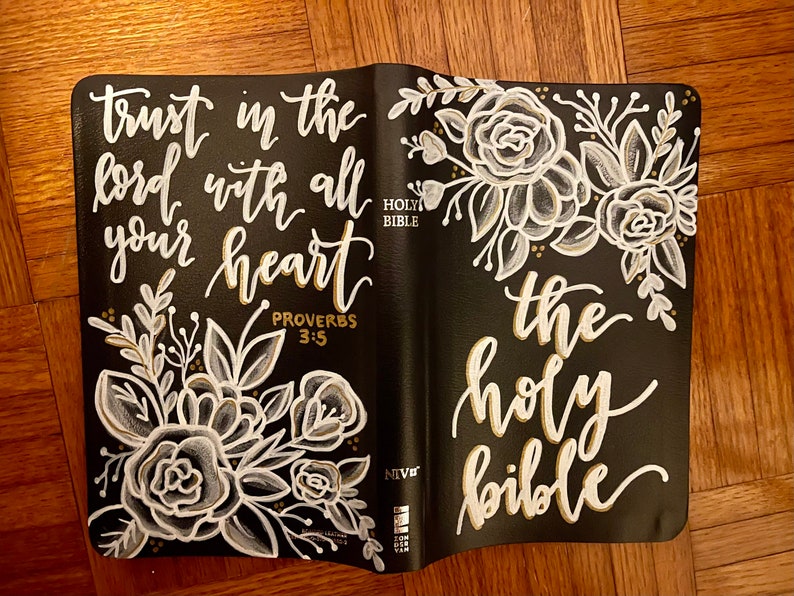 trust in the
lord with all
your heart
PROVERBS
3:5
HOLY
BIBLE
NIV
ZON
DER
VAN
the
holy
bible